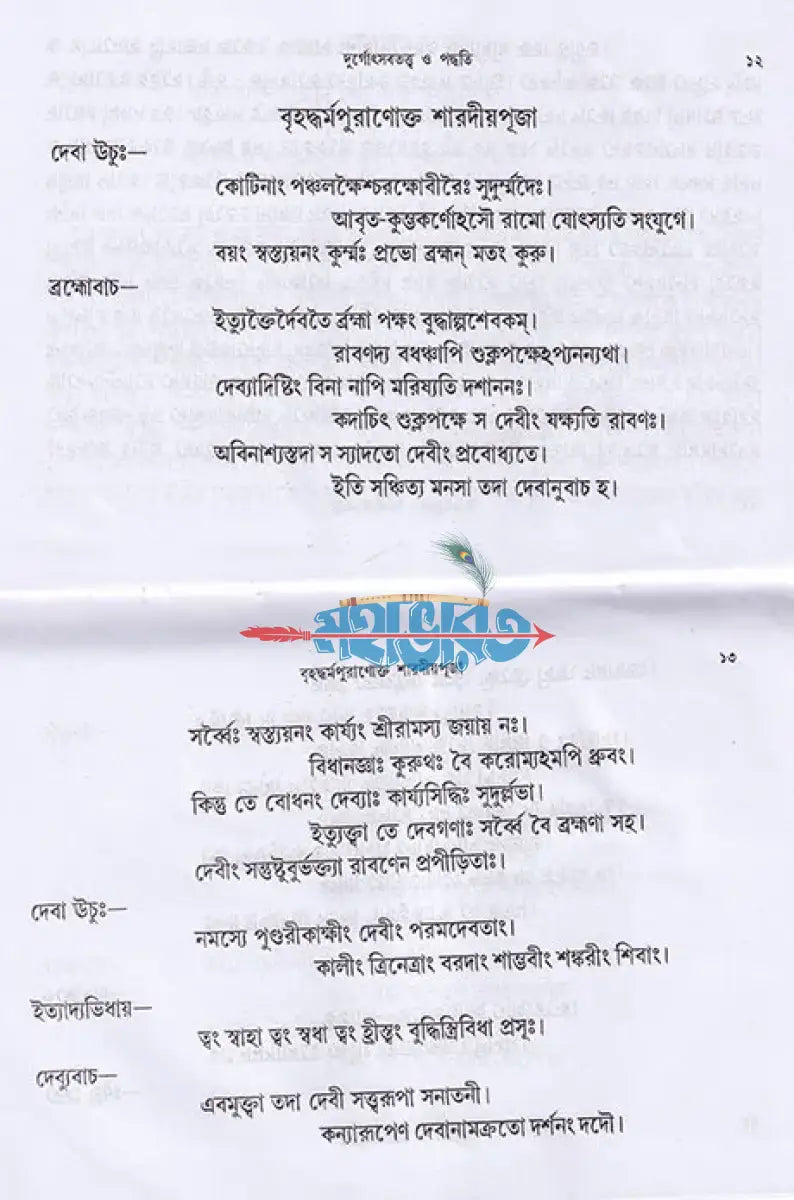 দুর্গোৎসবতত্ত্ব ও পদ্ধতি ১২
বৃহদ্ধর্মপুরাণোক্ত শারদীয়পূজা
দেবা উচুঃ—
কোটিনাং পঞ্চলক্ষৈশ্চরক্ষোবীরৈঃ সুদুর্ম্মদৈঃ।
আবৃত-কুম্ভকর্ণোহসৌ রামো যোৎস্যতি সংযুগে।
বয়ং স্বস্ত্যয়নং কুর্ম্মঃ প্রভো ব্রহ্মন্ মতং কুরু।
ব্রহ্মোবাচ—
ইত্যুক্তৈর্দৈবতৈ র্ব্রহ্মা পক্ষং বুদ্ধাল্পশেবকম্।
রাবণদ্য বধঞ্চাপি শুক্লপক্ষেহপ্যনন্যথা।
দেব্যাদিষ্টিং বিনা নাপি মরিষ্যতি দশাননঃ।
কদাচিৎ শুক্লপক্ষে স দেবীং যক্ষ্যতি রাবণঃ।
অবিনাশ্যস্তদা স স্যাদতো দেবীং প্রবোধ্যতে।
ইতি সঞ্চিত্য মনসা তদা দেবানুবাচ হ।
মহাভারত
বৃহদ্ধর্মপুরাণোক্ত শারদীয়পূজা ১৩
সর্ব্বৈঃ স্বস্ত্যয়নং কার্য্যং শ্রীরামস্য জয়ায় নঃ।
বিধানজ্ঞাঃ কুরুথঃ বৈ করোম্যহমপি ধ্রুবং।
কিন্তু তে বোধনং দেব্যাঃ কার্য্যসিদ্ধিঃ সুদুর্ল্লভা।
ইত্যুক্ত্বা তে দেবগণাঃ সর্ব্বে বৈ ব্রহ্মণা সহ।
দেবীং সন্তুষ্টুবুর্ভক্ত্যা রাবণেন প্রপীড়িতাঃ।
দেবা উচুঃ—
নমস্যে পুণ্ডরীকাক্ষীং দেবীং পরমদেবতাং।
কালীং ত্রিনেত্রাং বরদাং শাম্ভবীং শঙ্করীং শিবাং।
ইত্যাদ্যভিধায়—
ত্বং স্বাহা ত্বং স্বধা ত্বং হ্রীস্ত্বং বুদ্ধিস্ত্রিবিধা প্রসূঃ।
দেব্যুবাচ—
এবমুক্ত্বা তদা দেবী সত্ত্বরূপা সনাতনী।
কন্যারূপেণ দেবানামক্রতো দর্শনং দদৌ।